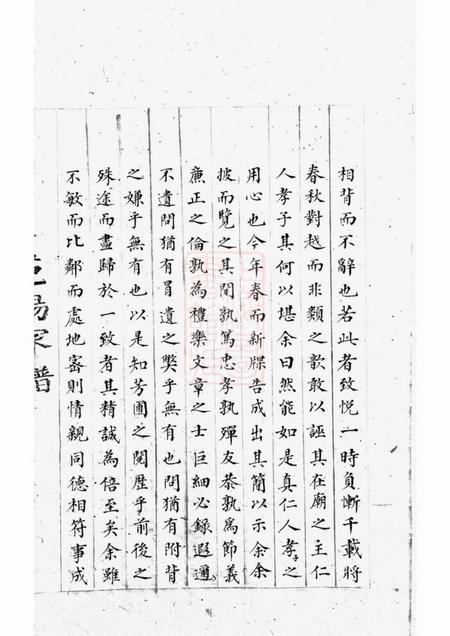 相背而不辭也若此者致悅一時負慚千載將
春秋對越而非類之歆敢以誣其在廟之主仁
人孝子其何以堪余曰然能如是真仁人孝子之
用心也今年春而新牒告成出其簡以示余余
披而覽之其間孰篤忠孝孰殫友恭孰為節義
廉正之倫孰為禮樂文章之士巨細必錄遐邇
不遺問猶有冒遺之弊乎無有也問猶有附背
之嫌乎無有也以是知芳圃之閱歷乎前後之
殊途而盡歸於一致者其精誠為倍至矣余雖
不敏而比鄰而處地密則情親同德相符事成
家譜